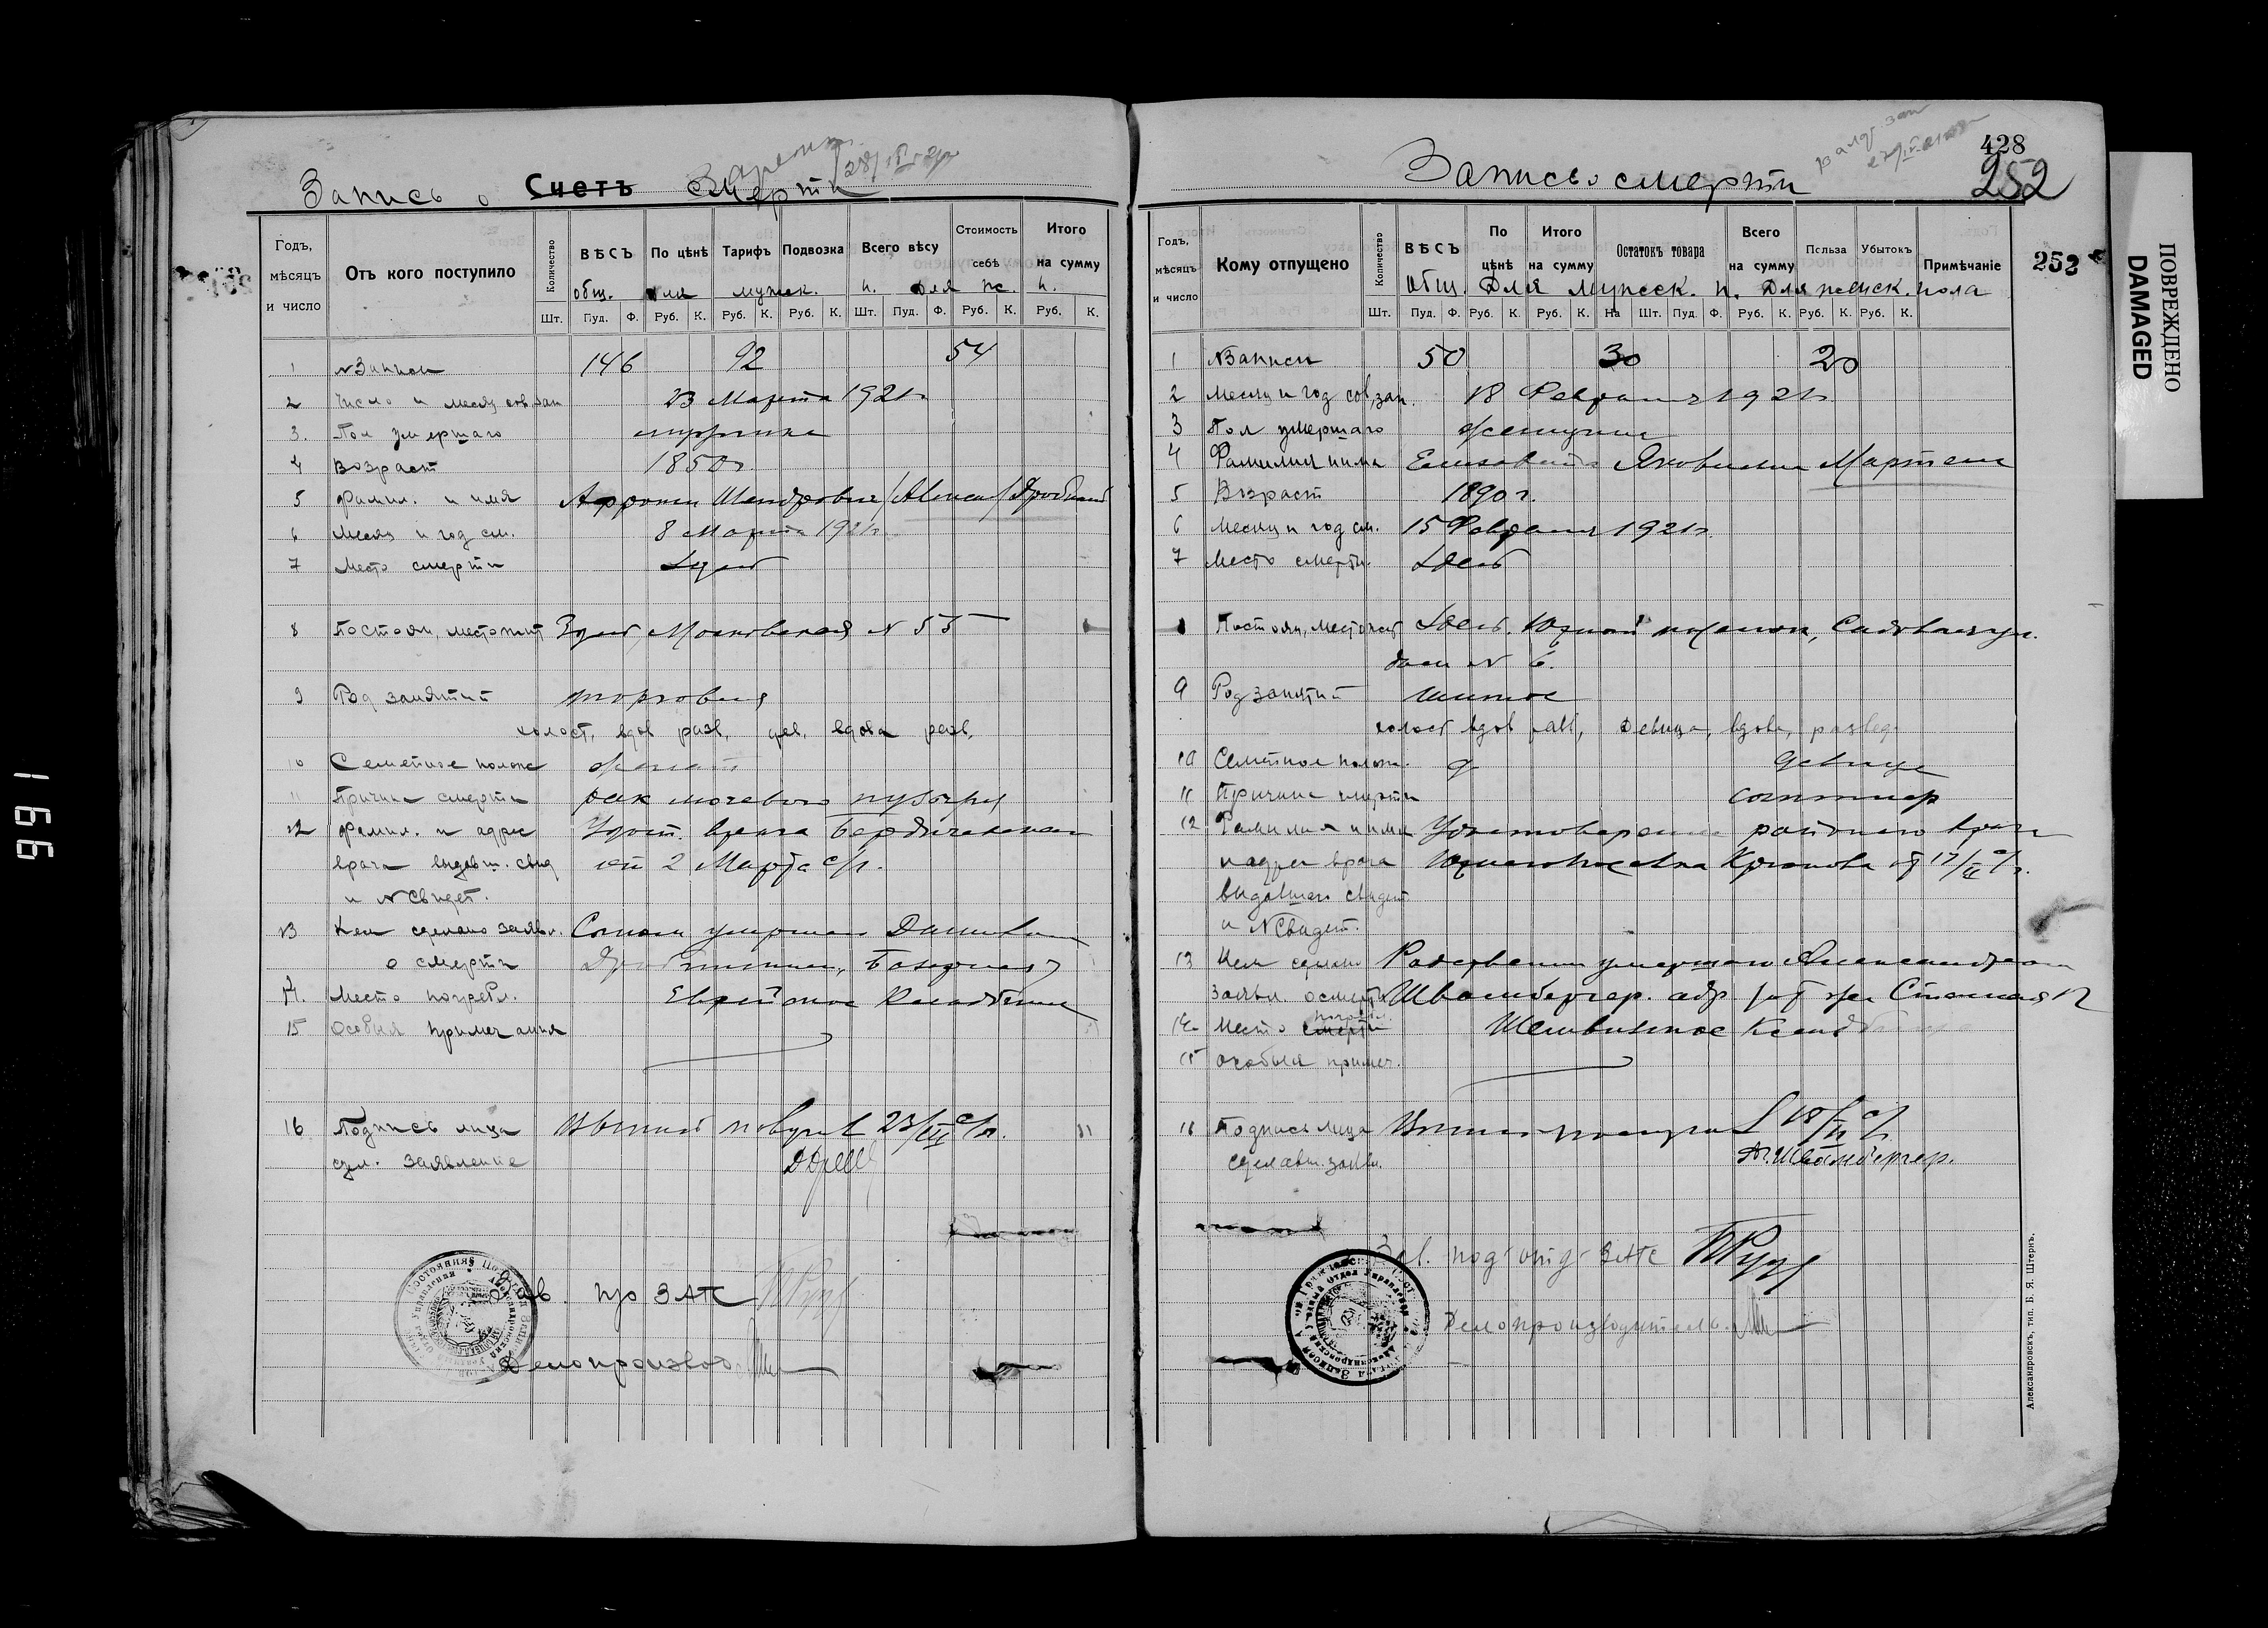 Запись о Счетъ смерти
Годъ, мѣсяцъ и число
Отъ кого поступило
Количество
ВѢСЪ
По цѣнѣ
Тарифъ
Подвозка
Всего вѣсу
Стоимость себѣ
Итого на сумму
общ. для мужск. п. для ж. п.
Шт. Пуд. Ф. Руб. К. Руб. К. Руб. К. Шт. Пуд. Ф. Руб. К. Руб. К.
1 № Записи 146 92 54
2 Число и месяц сов. зап. 23 Марта 1921 г.
3. Пол умершаго мужчина
4 Возраст 1850 г.
5 Фамил. и имя
6 Месяц и год см. 8 Марта 1921 г.
7 Место смерти Здесь
8 Постоян. местожит. Здесь, Московская № 55
9 Род занятий торговля
холост, вдов разв, дев, вдова разв,
10 Семейное полож женат
11 Причина смерти рак мочевого пузыря
12 Фамил. и адрес Удост. врача Бердичевская
врача выдавш. свид от 2 Марта с/г.
и № Свидет.
13 Кем сделано заявл. Сыном умершаго
о смерти Базарная 7
14. Место погребл. Еврейское Кладбище
15 Особыя примечания
16 Подпись лица 23/III с/г.
сдл. заявление
Зав. п/о ЗАГС
Делопроизвод
Запись о смерти
428
252
252
Годъ, мѣсяцъ и число
Кому отпущено
Количество
ВѢСЪ
По цѣнѣ
Итого на сумму
Остатокъ товара
Всего на сумму
Польза
Убытокъ
Примѣчаніе
Общ. Для мужеск. п. Для женск. пола
Шт. Пуд. Ф. Руб. К. Руб. К. На Шт. Пуд. Ф. Руб. К. Руб. К. Руб. К.
1 № Записи 50 30 20
2 Месяц и год сов. зап. 18 Февраля 1921 г.
3 Пол умершаго женщина
4 Фамилия и имя Елизавета Яковлевна Мартенс
5 Возраст 1890 г.
6 Месяц и год см. 15 Февраля 1921 г.
7 Место смерти. Здесь
8 Постоян. местожит Здесь. Южный поселок, Садовая ул.
дом № 6.
9 Род занятий шитье
холост вдов разв, девица, вдова, развед.
10 Семейное полож. девица
11 Причина смерти
12 Фамилия и имя Удостоверение районного врача
и адрес врача Южного поселка Крюкова от 17/II с/г.
выдавшего свидет.
и № Свидет.
13 Кем сделано Родственник умершаго Александром
заявл. о смерти Швамбергер. адр.
14 Место смерти погребл.
15 особыя примеч.
16 Подпись лица 18/II с/г
сделавш. заявл. А. Швамбергер.
Зав. подотд ЗАГС
Делопроизводитель
Александровскъ, тип. Б. Я. Штернъ.
ПОВРЕЖДЕНО
DAMAGED
1 66